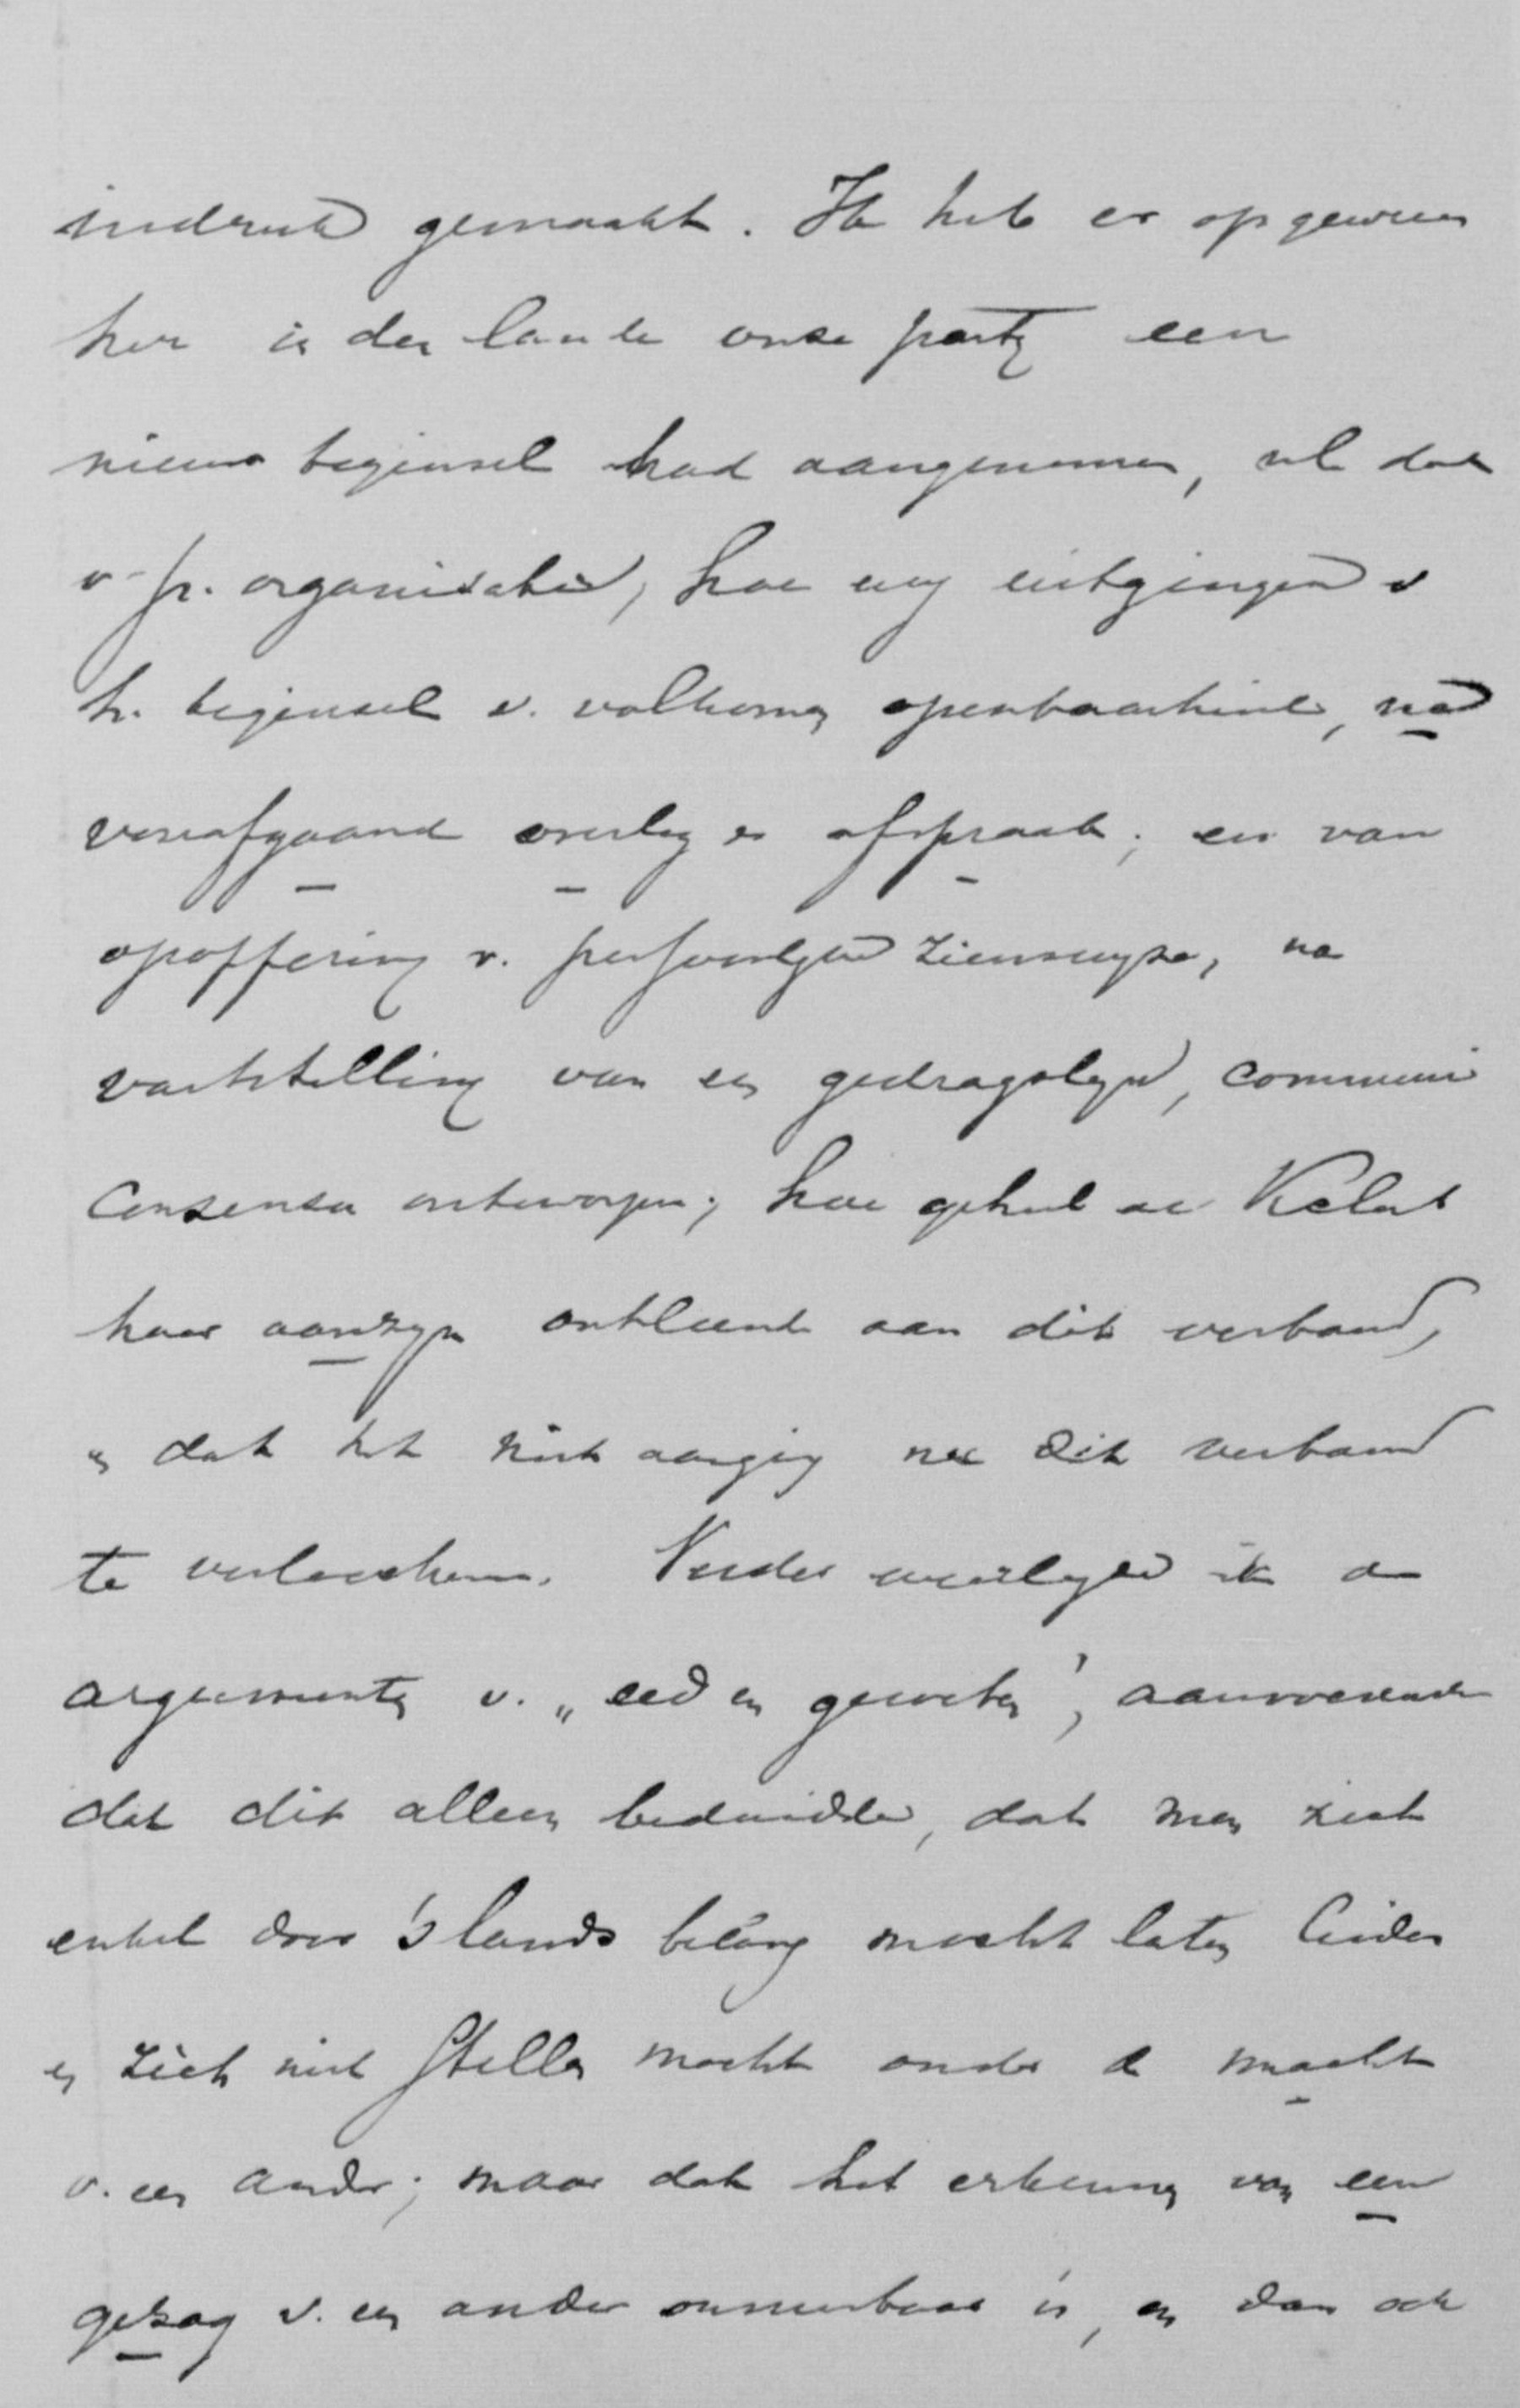 indruk gemaakt. Ik heb er op gewezen
hoe in den lande onze party een
nieuw beginsel had aangenomen, nl. dat
v. p. organisatie, hoe wy uitgingen v
h. beginsel v. volkomen openbaarheid, na
voorafgaand overleg en afspraak; en van
opoffering v. persoonlyke zienswyze, na
vaststelling van een gedragslyn, communi
consensu ontworpen; hoe geheel de
haar aanzyn ontleende aan dit verband,
en dat het niet aanging nu dit verband
te verloochenen. Verder weerlegde ik de
argumenten v. „eed en geweten", aanwezende
dat dit alleen beduidde, dat men zich
enkel door 's lands belang mocht laten leiden
en zich niet stellen mocht onder de macht
v. een ander; maar dat het erkenning van een
gezag v. een ander onmisbaar is, en dan ook